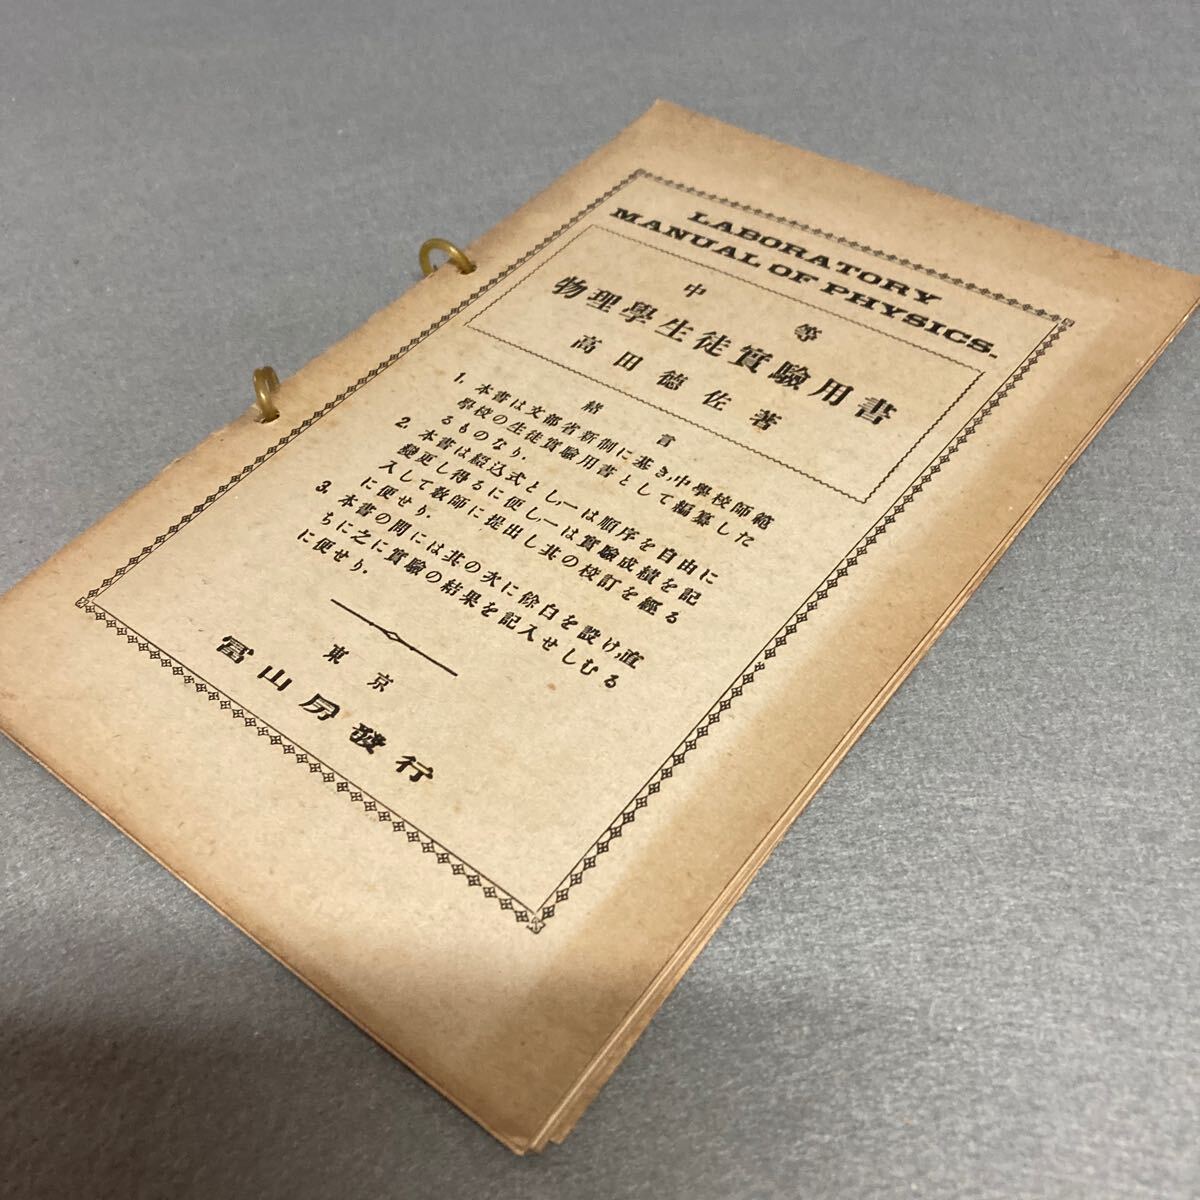 LABORATORY
MANUAL OF PHYSICS.
中等
物理學生徒實驗用書
高田德佐著
緒言
1. 本書は文部省新制に基き,中學校師範
學校の生徒實驗用書として編纂した
るものなり.
2. 本書は綴込式とし,一は順序を自由に
變更し得るに便し,一は實驗成績を記
入して敎師に提出し其の校訂を經る
に便せり.
3. 本書の問には其の次に餘白を設け,直
ちに之に實驗の結果を記入せしむる
に便せり.
東京
冨山房發行